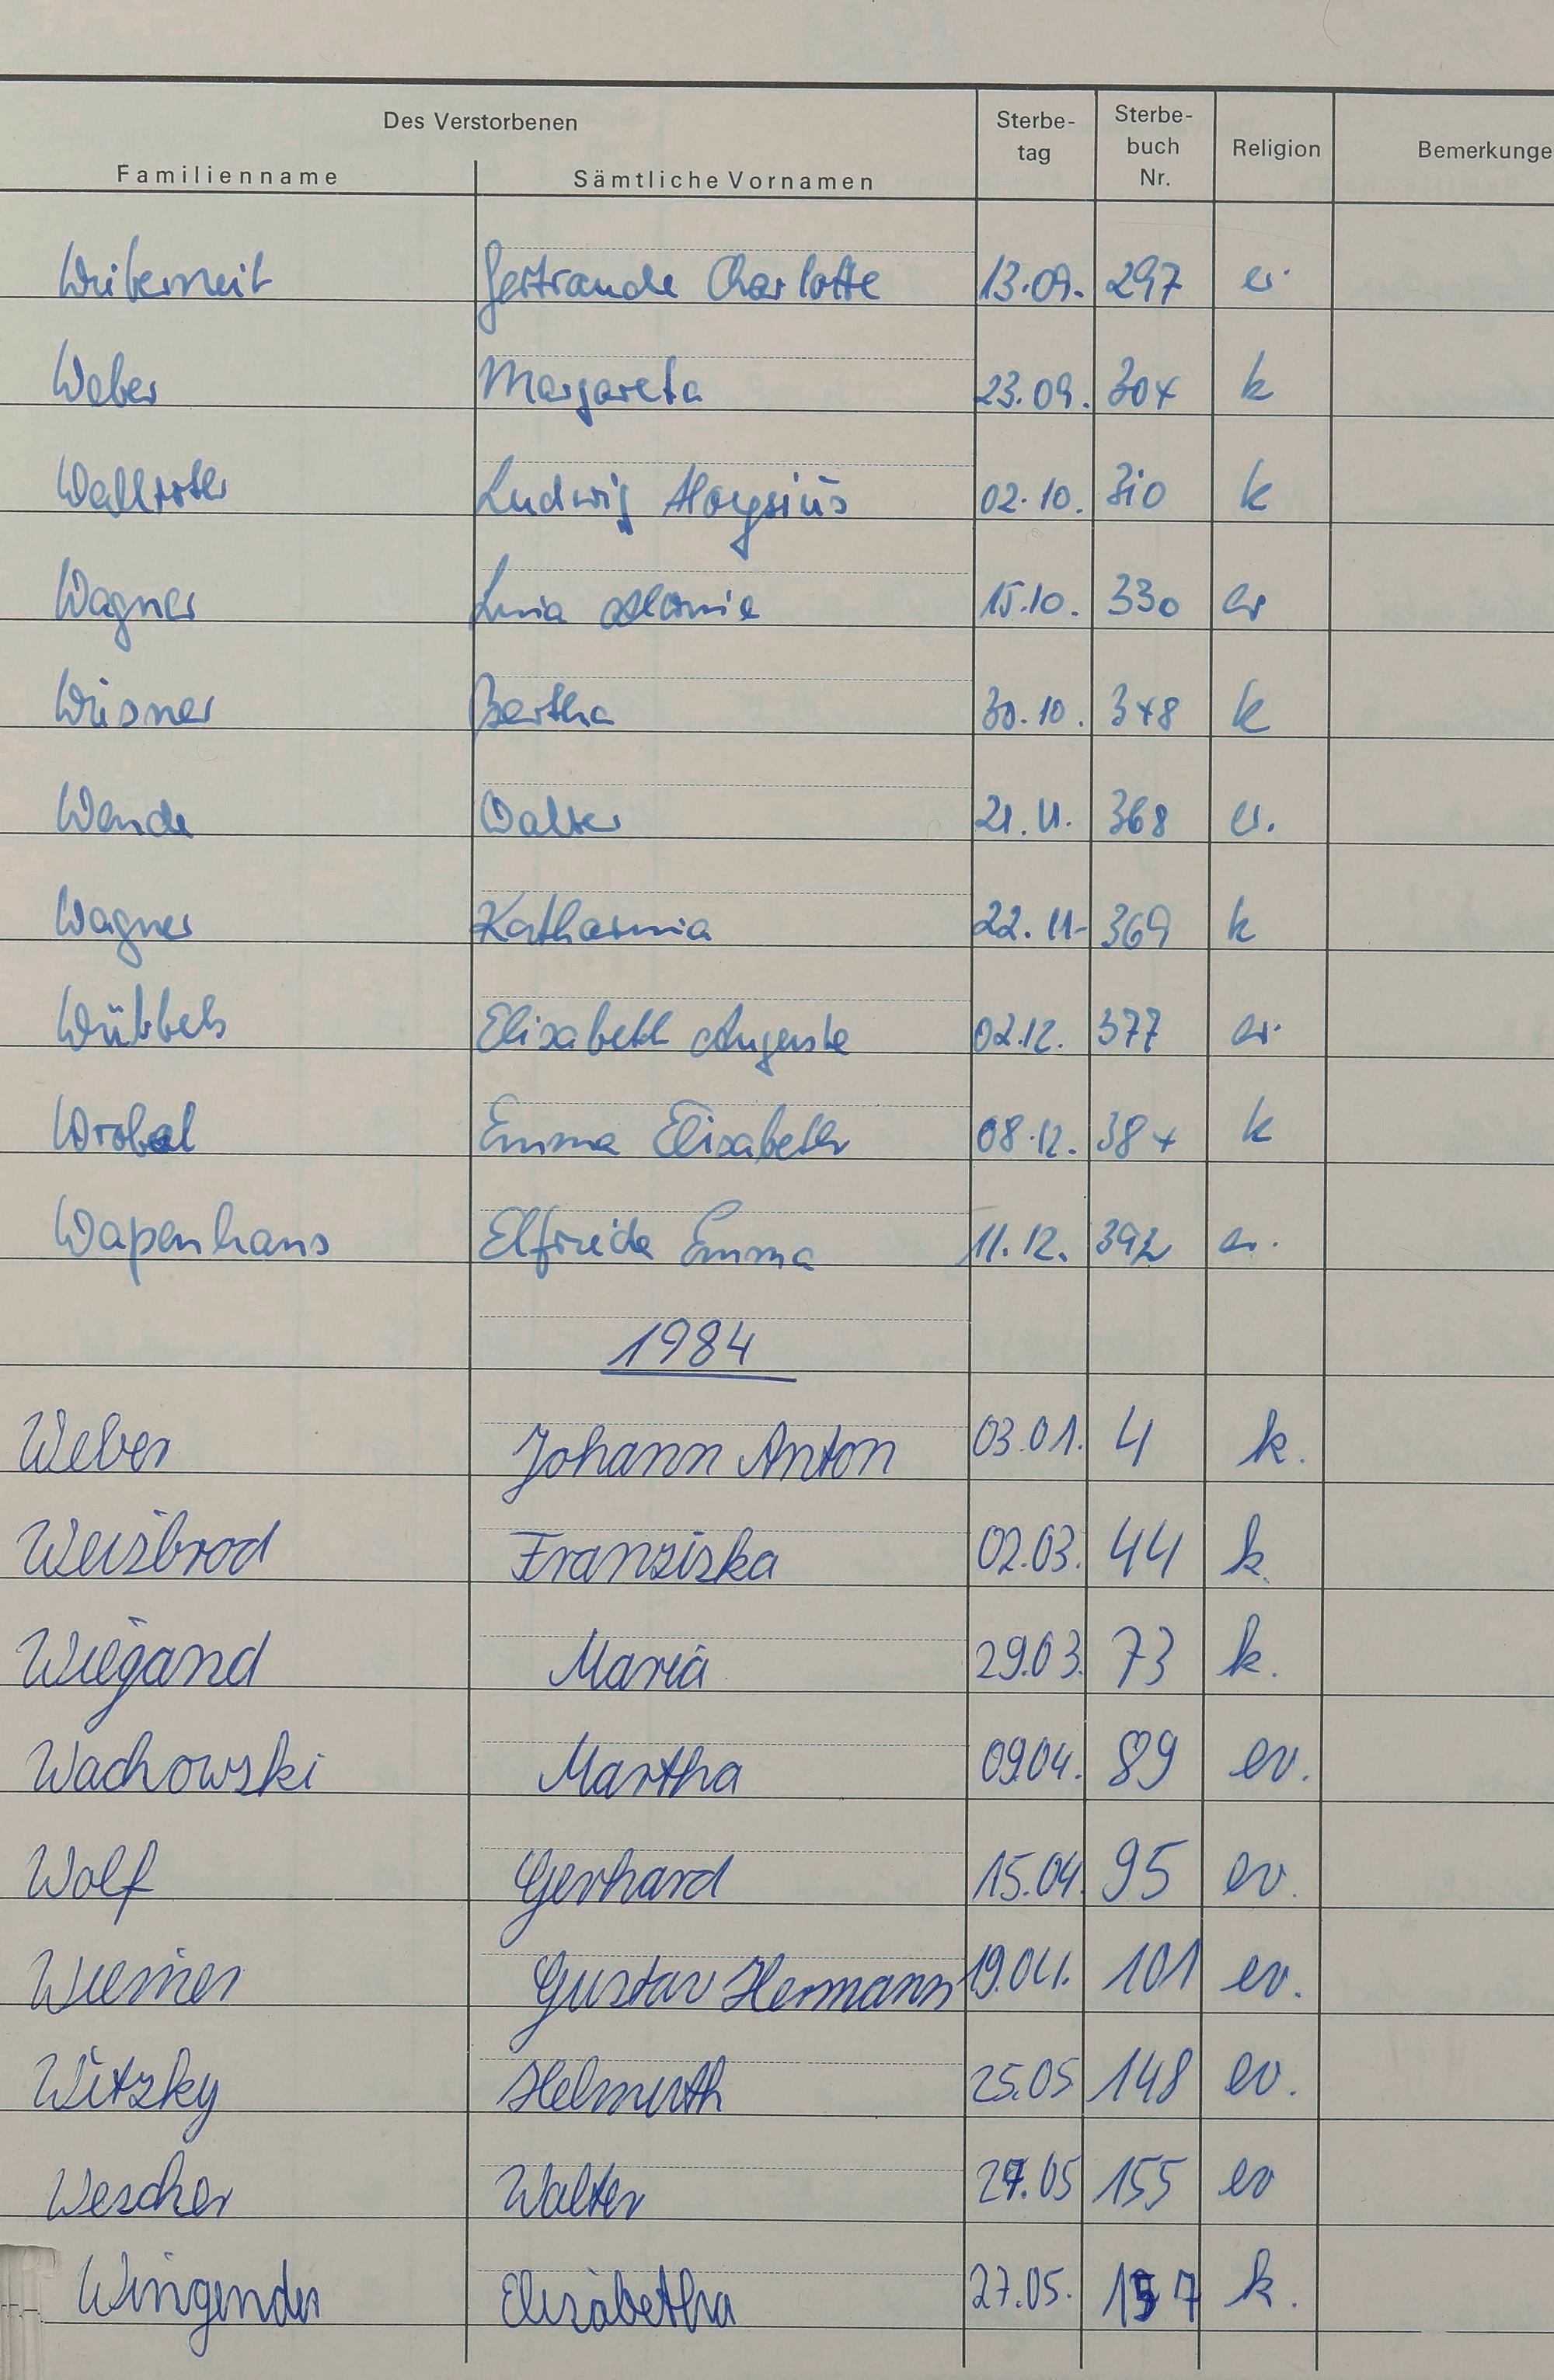 Des Verstorbenen
Familienname Sämtliche Vornamen Sterbe-tag Sterbe-buch Nr. Religion Bemerkunge
Gertraude Charlotte 13.09. 297 ev.
Weber Margareta 23.09. 304 k
Wallroth Ludwig Aloysius 02.10. 310 k
Wagner 15.10. 330 ev
Wiesner Bertha 30.10. 348 k
Wende Walter 21.11. 368 ev.
Wagner Katharina 22.11. 369 k
Wübbels Elisabeth Auguste 02.12. 377 ev.
Wrobel Emma Elisabeth 08.12. 384 k
Wapenhans Elfriede Emma 11.12. 392 ev.
1984
Weber Johann Anton 03.01. 4 k.
Weisbrod Franziska 02.03. 44 k.
Wiegand Maria 29.03. 73 k.
Wachowski Martha 09.04. 89 ev.
Wolf Gerhard 15.04. 95 ev.
Wiemer Gustav Hermann 19.04. 101 ev.
Witzky Helmuth 25.05 148 ev.
Wescher Walter 27.05 155 ev
Wingender Elisabetha 27.05. 157 k.